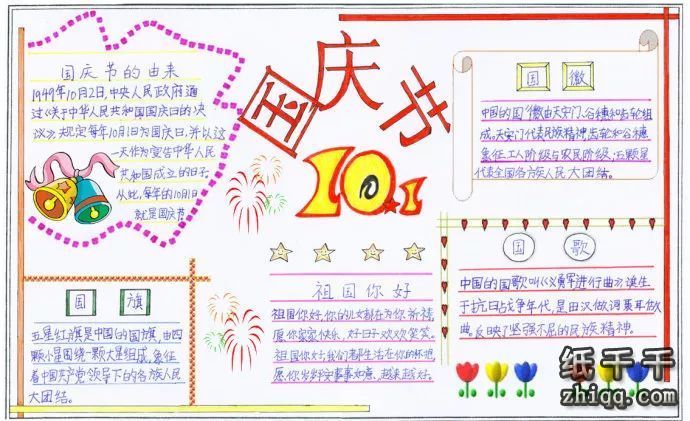 国庆节的由来
1949年10月2日,中央人民政府通
过《关于中华人民共和国国庆日的决
议》规定每年10月1日为国庆日,并以这
一天作为宣告中华人民
共和国成立的日子,
从此,每年的10月1日
就是国庆节。
国庆节
10.1
国徽
中国的国徽由天安门、谷穗和齿轮组
成。天安门代表民族精神,齿轮和谷穗
象征工人阶级与农民阶级,五颗星
代表全国各族人民大团结。
国旗
五星红旗是中国的国旗,由四
颗小星围绕一颗大星组成,象征
着中国共产党领导下的各族人民
大团结。
祖国你好
祖国你好,你的儿女都在为你祈福,
愿你家家快乐,好日子欢欢笑笑。
祖国你好,我们都生活在你的怀抱,
愿你岁岁平安事事如意、越来越好。
国歌
中国的国歌叫《义勇军进行曲》诞生
于抗日战争年代,是田汉做词聂耳做
曲。反映了坚强不屈的民族精神。
纸千千
zhiqq.com